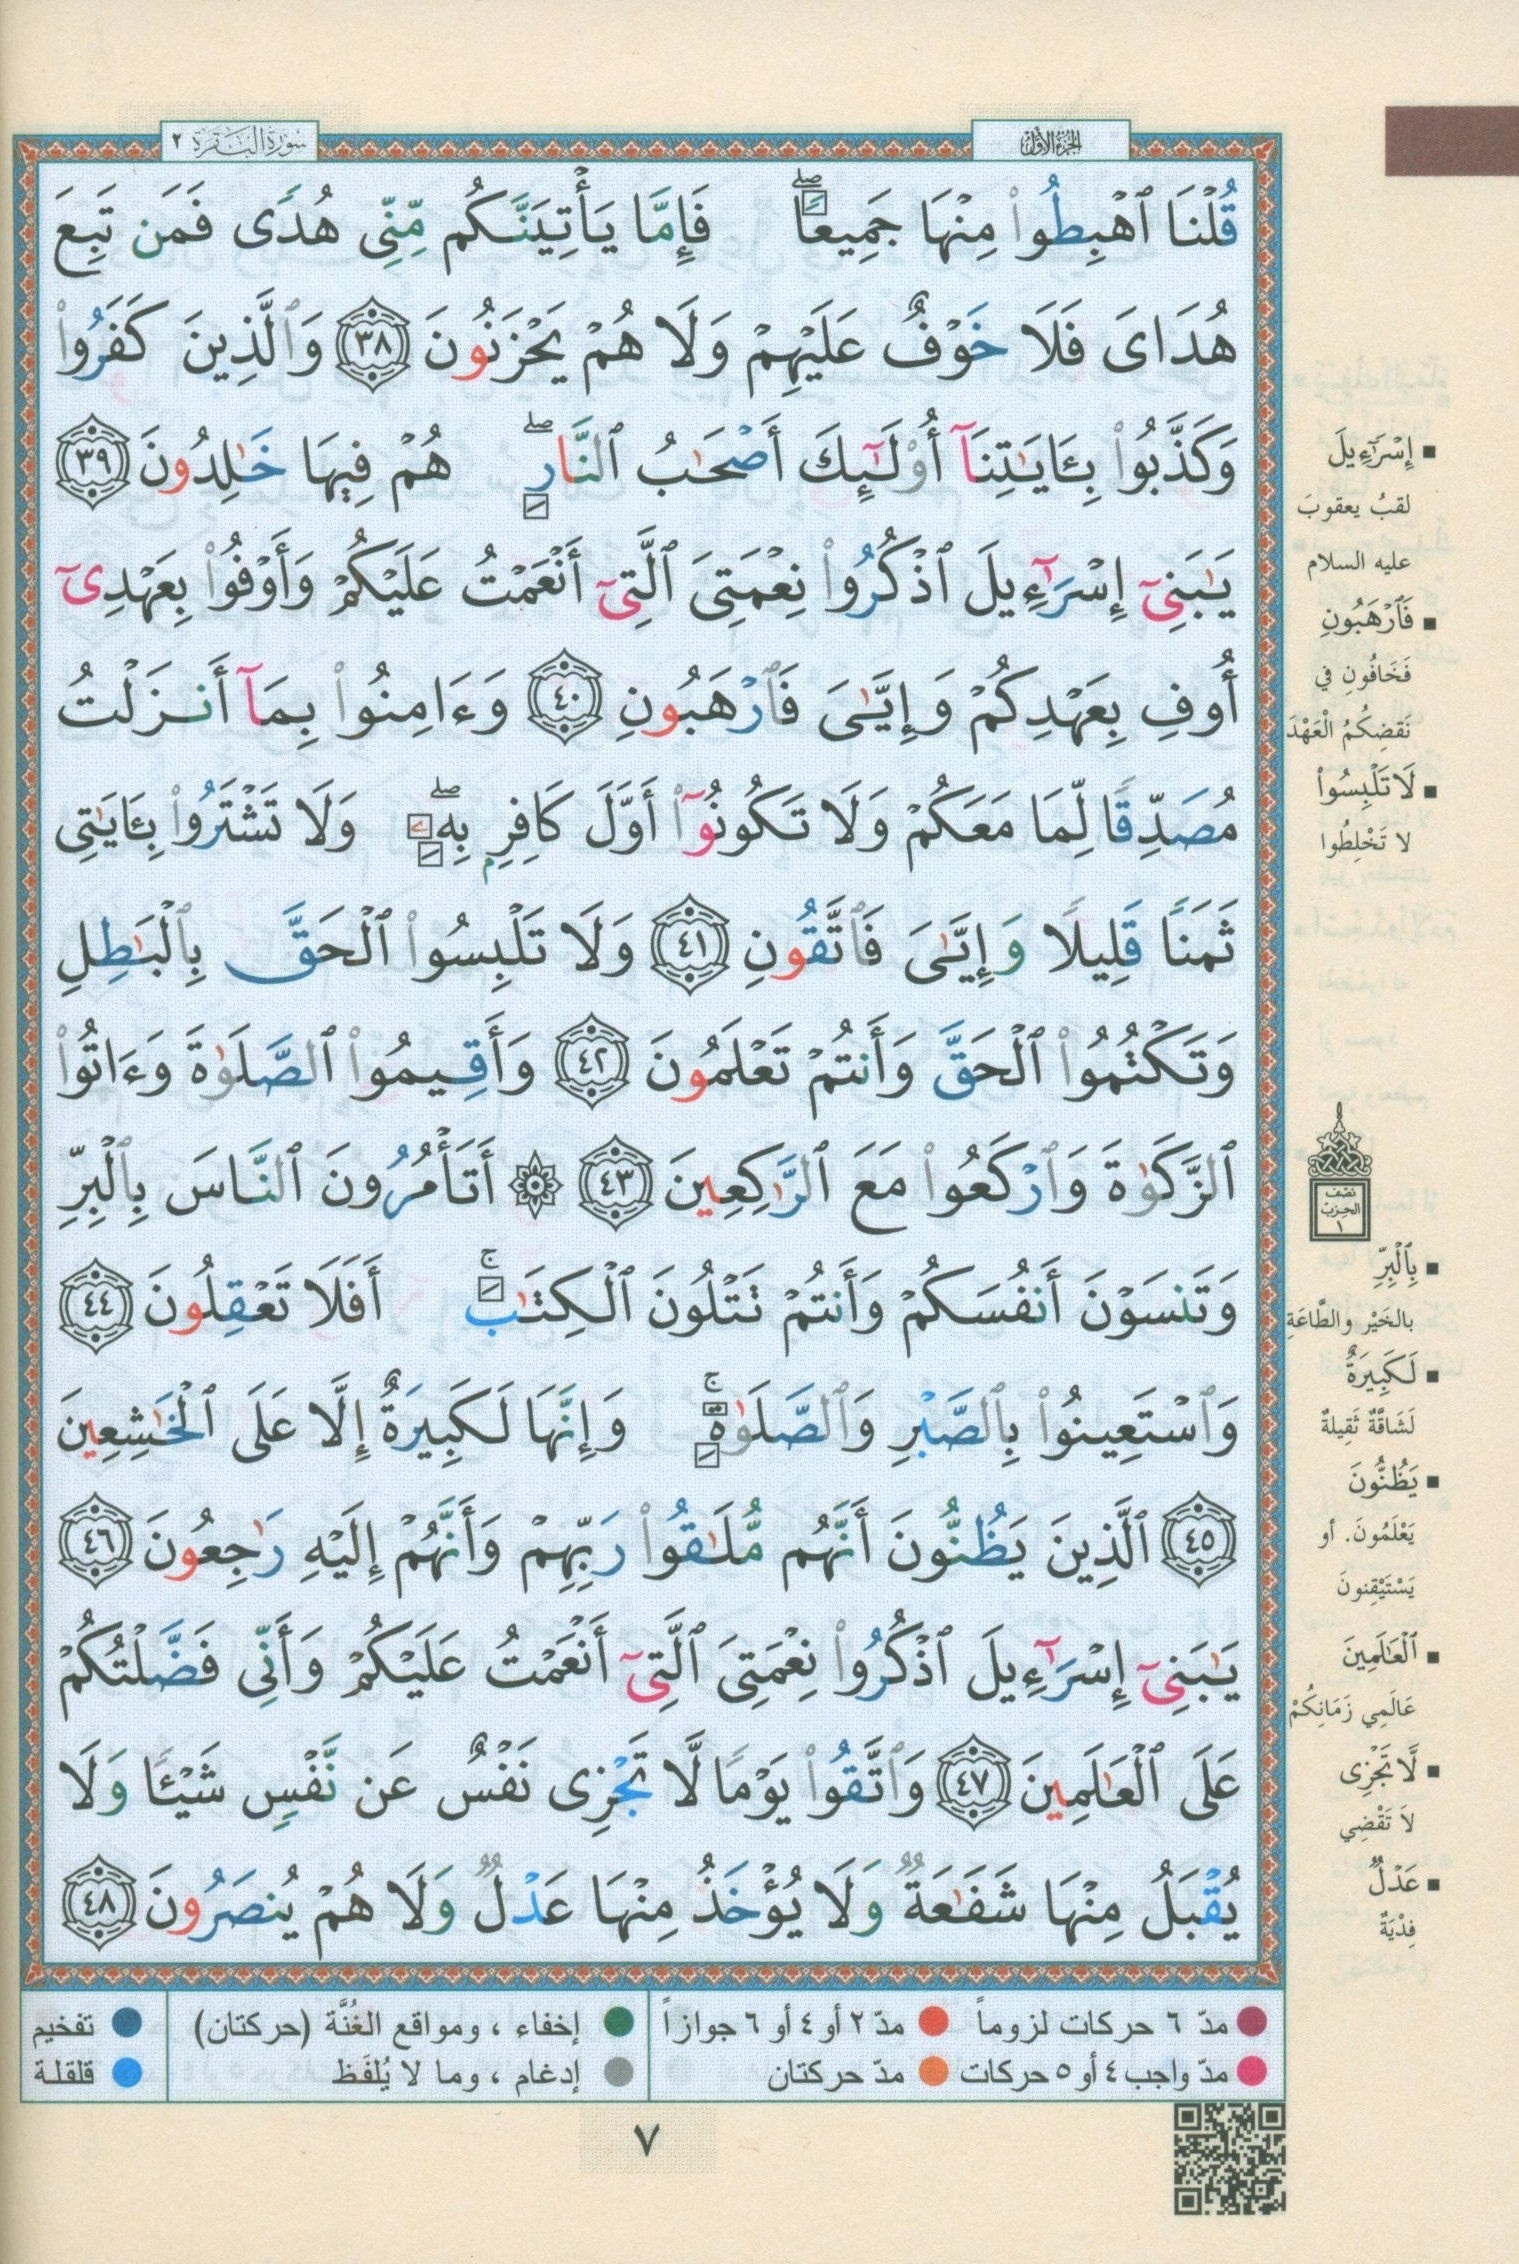 الجزء الأول
سورة البقرة ٢
قُلْنَا ٱهْبِطُوا۟ مِنْهَا جَمِيعًۭا ۖ فَإِمَّا يَأْتِيَنَّكُم مِّنِّى هُدًۭى فَمَن تَبِعَ
هُدَاىَ فَلَا خَوْفٌ عَلَيْهِمْ وَلَا هُمْ يَحْزَنُونَ ٣٨ وَٱلَّذِينَ كَفَرُوا۟
وَكَذَّبُوا۟ بِـَٔايَـٰتِنَآ أُو۟لَـٰٓئِكَ أَصْحَـٰبُ ٱلنَّارِ ۖ هُمْ فِيهَا خَـٰلِدُونَ ٣٩
يَـٰبَنِىٓ إِسْرَٰٓءِيلَ ٱذْكُرُوا۟ نِعْمَتِىَ ٱلَّتِىٓ أَنْعَمْتُ عَلَيْكُمْ وَأَوْفُوا۟ بِعَهْدِىٓ
أُوفِ بِعَهْدِكُمْ وَإِيَّـٰىَ فَٱرْهَبُونِ ٤٠ وَءَامِنُوا۟ بِمَآ أَنزَلْتُ
مُصَدِّقًۭا لِّمَا مَعَكُمْ وَلَا تَكُونُوٓا۟ أَوَّلَ كَافِرٍۭ بِهِۦ ۖ وَلَا تَشْتَرُوا۟ بِـَٔايَـٰتِى
ثَمَنًۭا قَلِيلًۭا وَإِيَّـٰىَ فَٱتَّقُونِ ٤١ وَلَا تَلْبِسُوا۟ ٱلْحَقَّ بِٱلْبَـٰطِلِ
وَتَكْتُمُوا۟ ٱلْحَقَّ وَأَنتُمْ تَعْلَمُونَ ٤٢ وَأَقِيمُوا۟ ٱلصَّلَوٰةَ وَءَاتُوا۟
ٱلزَّكَوٰةَ وَٱرْكَعُوا۟ مَعَ ٱلرَّٰكِعِينَ ٤٣ ۞ أَتَأْمُرُونَ ٱلنَّاسَ بِٱلْبِرِّ
وَتَنسَوْنَ أَنفُسَكُمْ وَأَنتُمْ تَتْلُونَ ٱلْكِتَـٰبَ ۚ أَفَلَا تَعْقِلُونَ ٤٤
وَٱسْتَعِينُوا۟ بِٱلصَّبْرِ وَٱلصَّلَوٰةِ ۚ وَإِنَّهَا لَكَبِيرَةٌ إِلَّا عَلَى ٱلْخَـٰشِعِينَ
٤٥ ٱلَّذِينَ يَظُنُّونَ أَنَّهُم مُّلَـٰقُوا۟ رَبِّهِمْ وَأَنَّهُمْ إِلَيْهِ رَٰجِعُونَ ٤٦
يَـٰبَنِىٓ إِسْرَٰٓءِيلَ ٱذْكُرُوا۟ نِعْمَتِىَ ٱلَّتِىٓ أَنْعَمْتُ عَلَيْكُمْ وَأَنِّى فَضَّلْتُكُمْ
عَلَى ٱلْعَـٰلَمِينَ ٤٧ وَٱتَّقُوا۟ يَوْمًۭا لَّا تَجْزِى نَفْسٌ عَن نَّفْسٍۢ شَيْـًۭٔا وَلَا
يُقْبَلُ مِنْهَا شَفَـٰعَةٌۭ وَلَا يُؤْخَذُ مِنْهَا عَدْلٌۭ وَلَا هُمْ يُنصَرُونَ ٤٨
▪ إِسْرَٰٓءِيلَ
لقبُ يعقوبَ
عليه السلام
▪ فَٱرْهَبُونِ
فَخَافُونِ في
نَقضِكُمُ الْعَهْدَ
▪ لَا تَلْبِسُوا۟
لا تَخْلِطُوا
نصف
الحزب
١
▪ بِٱلْبِرِّ
بالخَيْر والطَّاعَةِ
▪ لَكَبِيرَةٌ
لَشَاقَّةٌ ثَقِيلةٌ
▪ يَظُنُّونَ
يَعْلَمُونَ. أو
يَسْتَيْقِنونَ
▪ ٱلْعَـٰلَمِينَ
عَالَمِي زَمَانِكُمْ
▪ لَّا تَجْزِى
لاَ تَقْضِي
▪ عَدْلٌۭ
فِدْيَةٌ
مدّ ٦ حركات لزوماً
مدّ ٢ أو ٤ أو ٦ جوازاً
إخفاء ، ومواقع الغُنَّة (حركتان)
تفخيم
مدّ واجب ٤ أو ٥ حركات
مدّ حركتان
إدغام ، وما لا يُلفَظ
قلقلة
٧